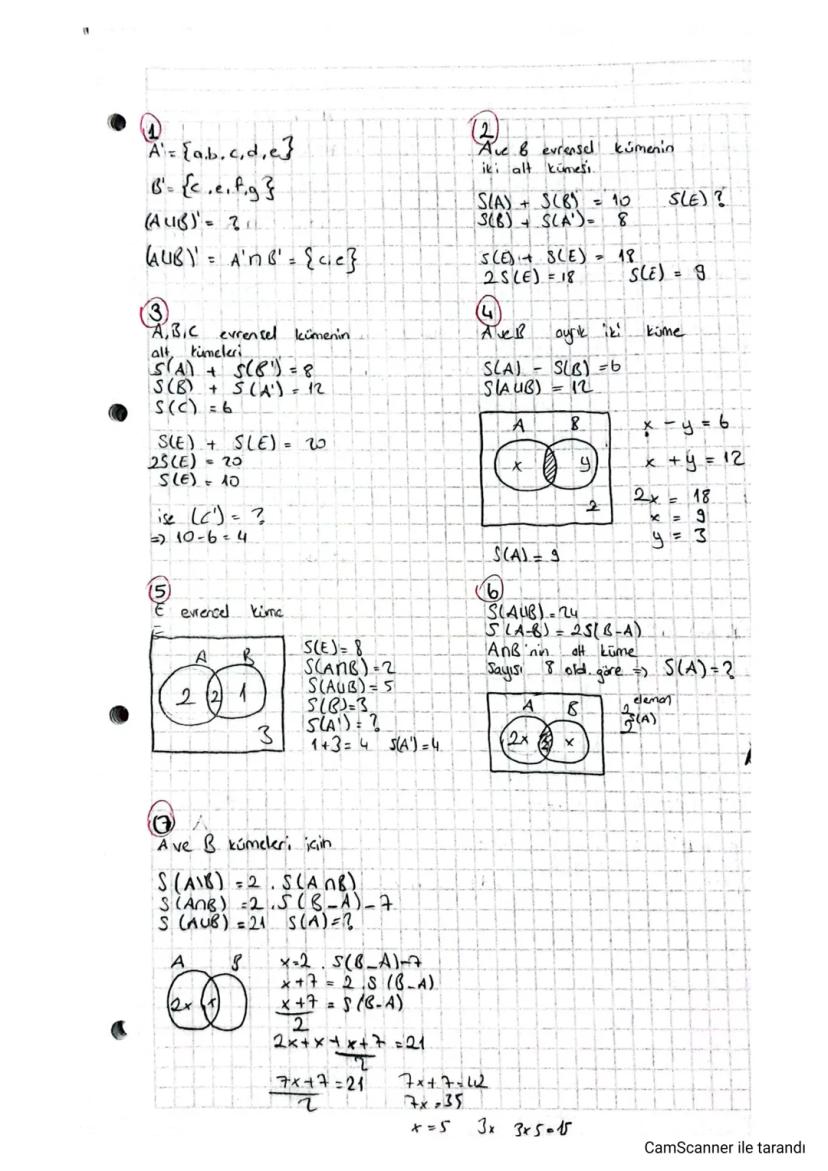 1
A' = {a,b,c,d,e}
B' = {c,e,f,g}
(A∪B)' = ?
(A∪B)' = A'∩B' = {c,e}
2
A ve B evrensel kümenin
iki alt kümesi
S(A) + S(B') = 10 S(E)?
S(B) + S(A') = 8
S(E) + S(E) = 18
2S(E) = 18 S(E) = 9
3
A,B,C evrensel kümenin
alt kümeleri
S(A) + S(B') = 8
S(B) + S(A') = 12
S(C) = 6
S(E) + S(E) = 20
2S(E) = 20
S(E) = 10
ise (C') = ?
=> 10-6 = 4
4
A ve B ayrık iki küme
S(A) - S(B) = 6
S(A∪B) = 12
A B
x y
2
x - y = 6
x + y = 12
2x = 18
x = 9
y = 3
S(A) = 9
5
E evrensel küme
E
A B
2 2 1
3
S(E) = 8
S(A∩B) = 2
S(A∪B) = 5
S(B) = 3
S(A') = ?
1+3 = 4 S(A') = 4
6
S(A∪B) = 24
S(A-B) = 2S(B-A)
A∩B'nin alt küme
sayısı 8 old. göre => S(A) = ?
A B
2x x
eleman
2
2 S(A)
7
A ve B kümeleri için
S(A\B) = 2 . S(A∩B)
S(A∩B) = 2 . S(B-A) - 7
S(A∪B) = 21 S(A) = ?
A B
2x x
x = 2 . S(B-A) - 7
x+7 = 2 . S(B-A)
x+7 = S(B-A)
2
2x + x + x+7 = 21
2
7x+7 = 21 7x+7 = 42
2 7x = 35
x = 5 3x 3x5 = 15
CamScanner ile tarandı